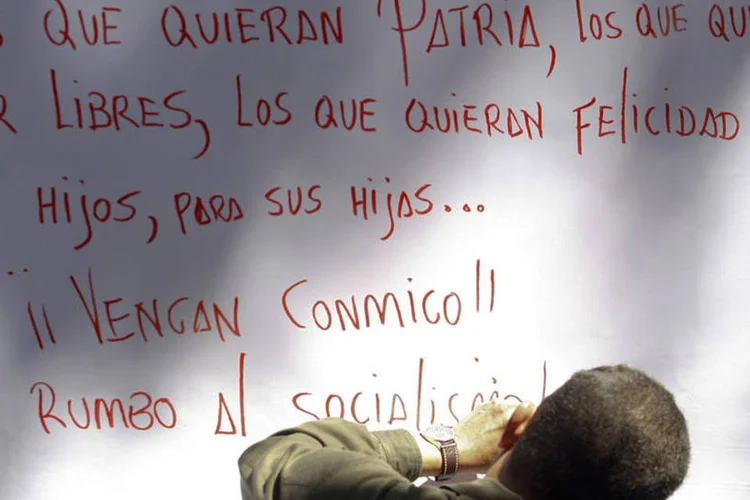 QUE QUIERAN PATRIA, LOS QUE QU
R LIBRES, LOS QUE QUIERAN FELICIDAD
HIJOS, PARA SUS HIJAS...
¡¡ VENGAN CONMIGO!!
RUMBO AL